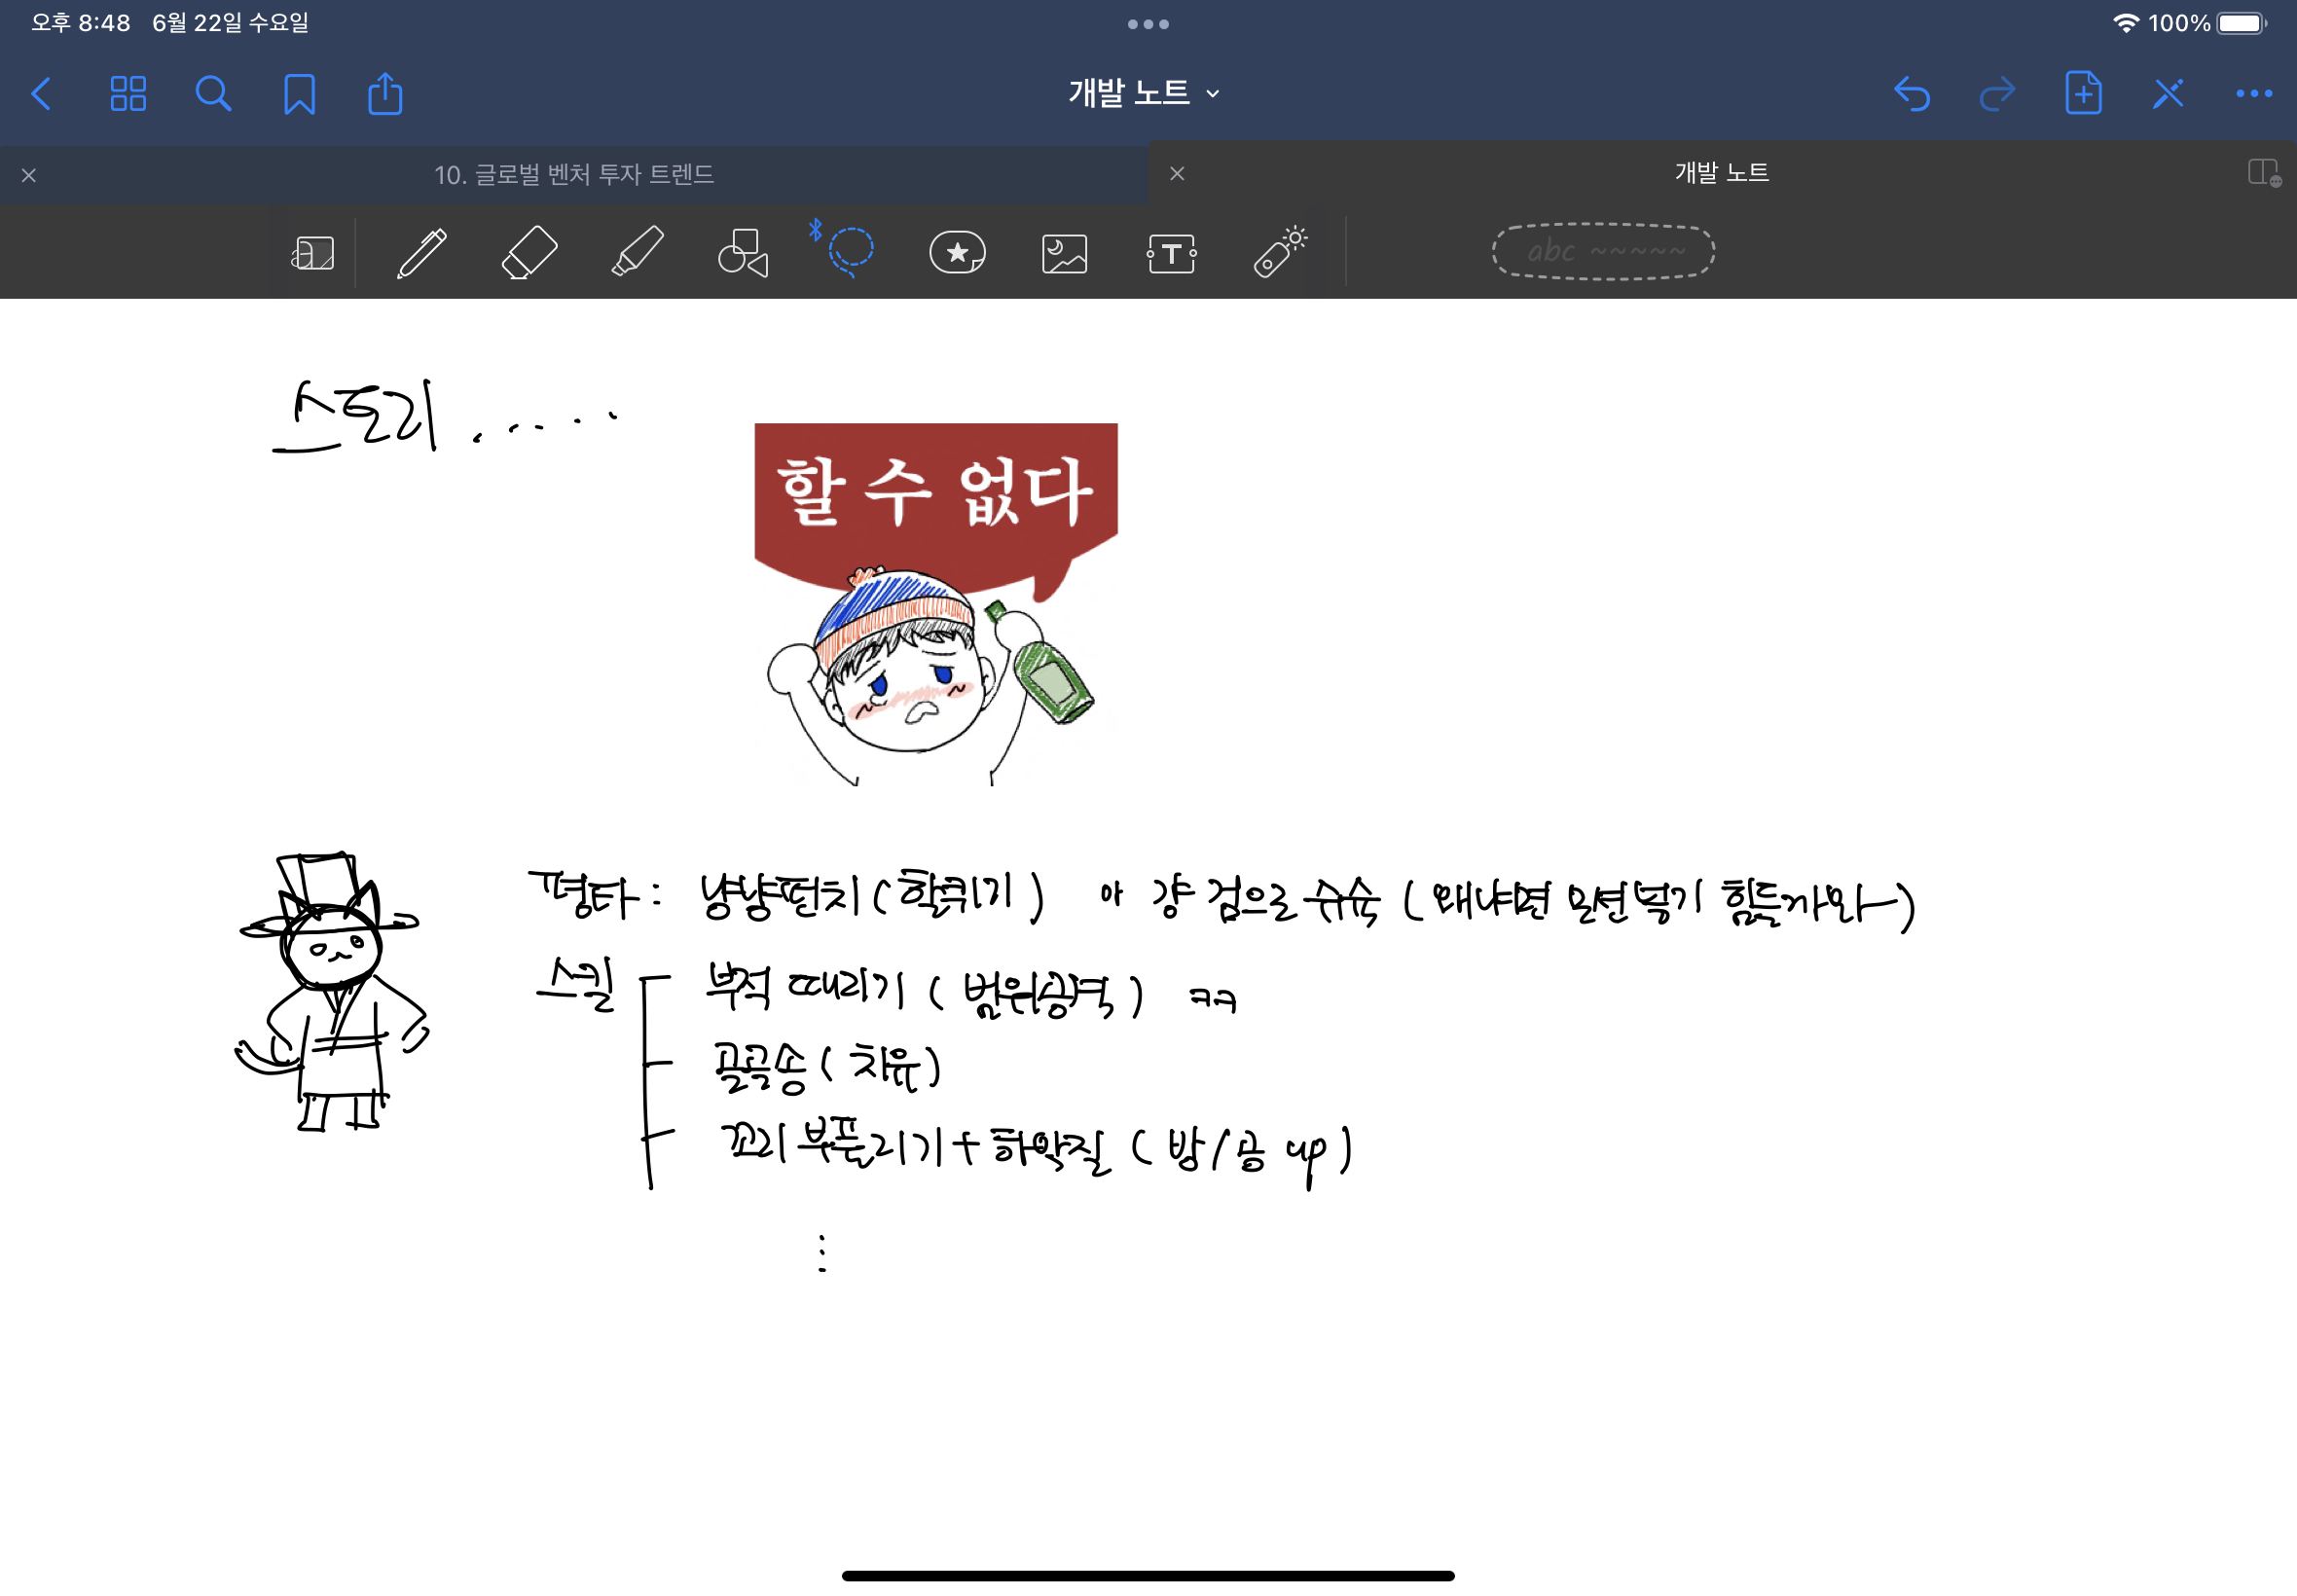 오후 8:48 6월 22일 수요일
100%
개발 노트
10. 글로벌 벤처 투자 트렌드
개발 노트
abc ~~~~~
스토리 .....
할 수 없다
평타 : 냥냥펀치(할퀴기) 아 장검으로 슉슉 (왜냐면 문명묘이
스킬
부적 날리기 ( 범위공격) ㅋㅋ
골골송(치유)
꼬리 부풀리기+하악질 ( 방/공 up )